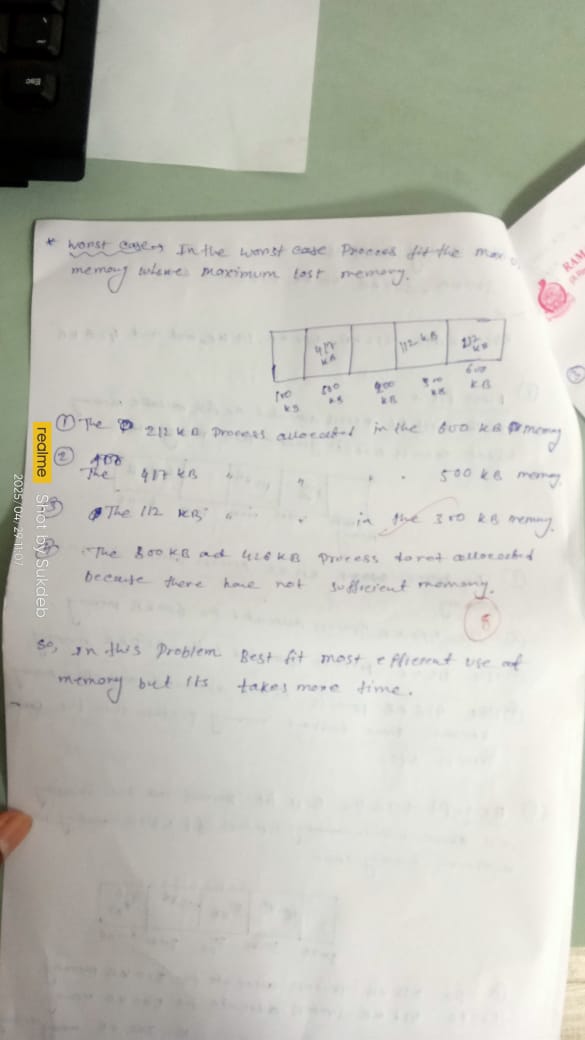 * Worst case → In the worst case Process fit the max
memory where maximum lost memory.
417 KB
112 KB
212 KB
100 KB
500 KB
200 KB
300 KB
600 KB
① The 212 KB Process allocated in the 600 KB memory
② The 417 KB " " " " 500 KB memory.
③ The 112 KB " " in the 300 KB memory.
The 800 KB ad 426 KB Process donot allocated
because there have not sufficient memory.
8
So, in this Problem Best fit most efficient use of
memory but its takes more time.
RAM
Esc
realme Shot by Sukdeb
2025/04/29 11:07